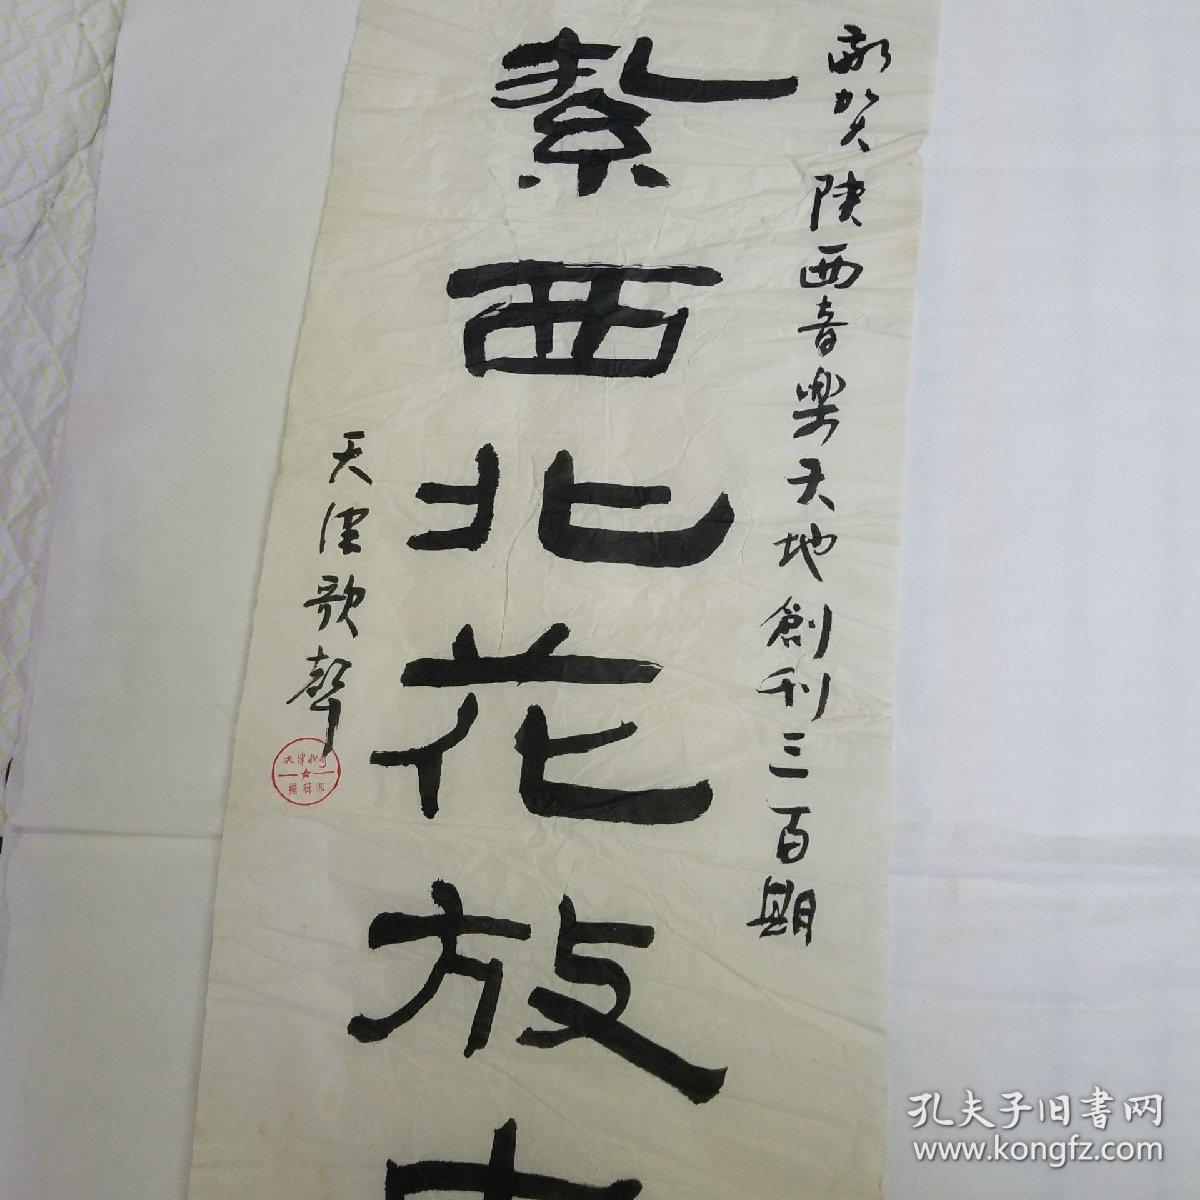 敬贺陕西音樂天地創刊三百期
紮西北花放
天津歌聲
天津歌声
編辑部
孔夫子旧書网
www.kongfz.com